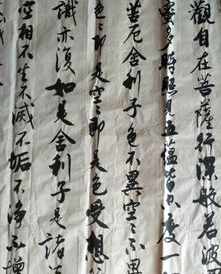 觀自在菩薩行深般若波
蜜多時照見五蘊皆空度一
苦厄舍利子色不異空々不異
色々即是空々即是色受想
識亦復如是舍利子是諸
空相不生不滅不垢不淨不增